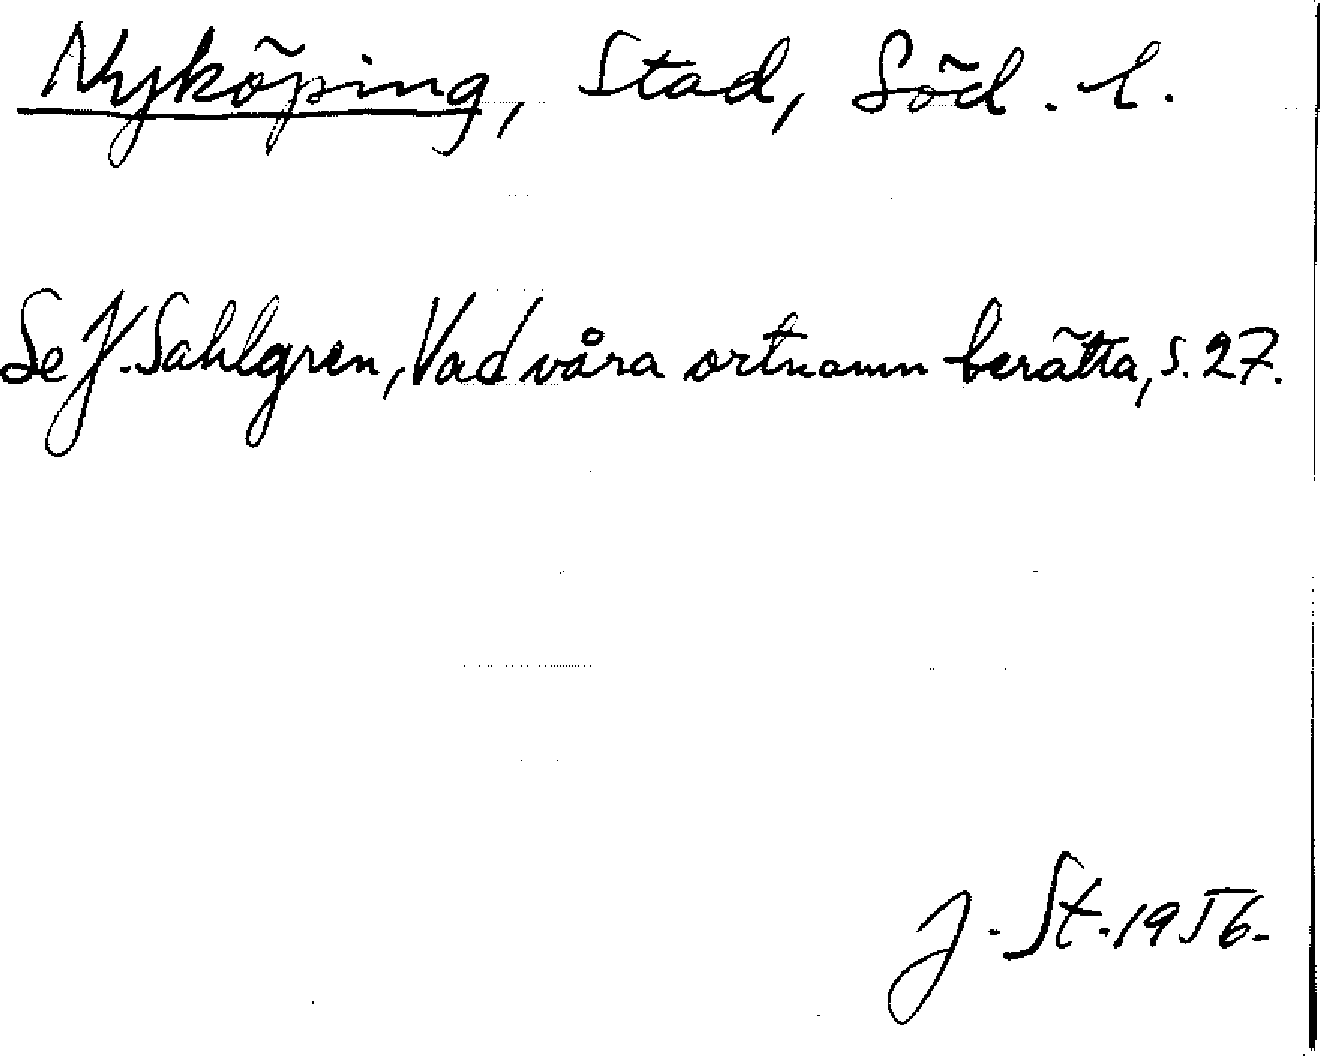 Nyköping, Stad, Söd. l.
Se J. Sahlgren, Vad våra ortnamn berätta, s. 27.
J. St. 1956.